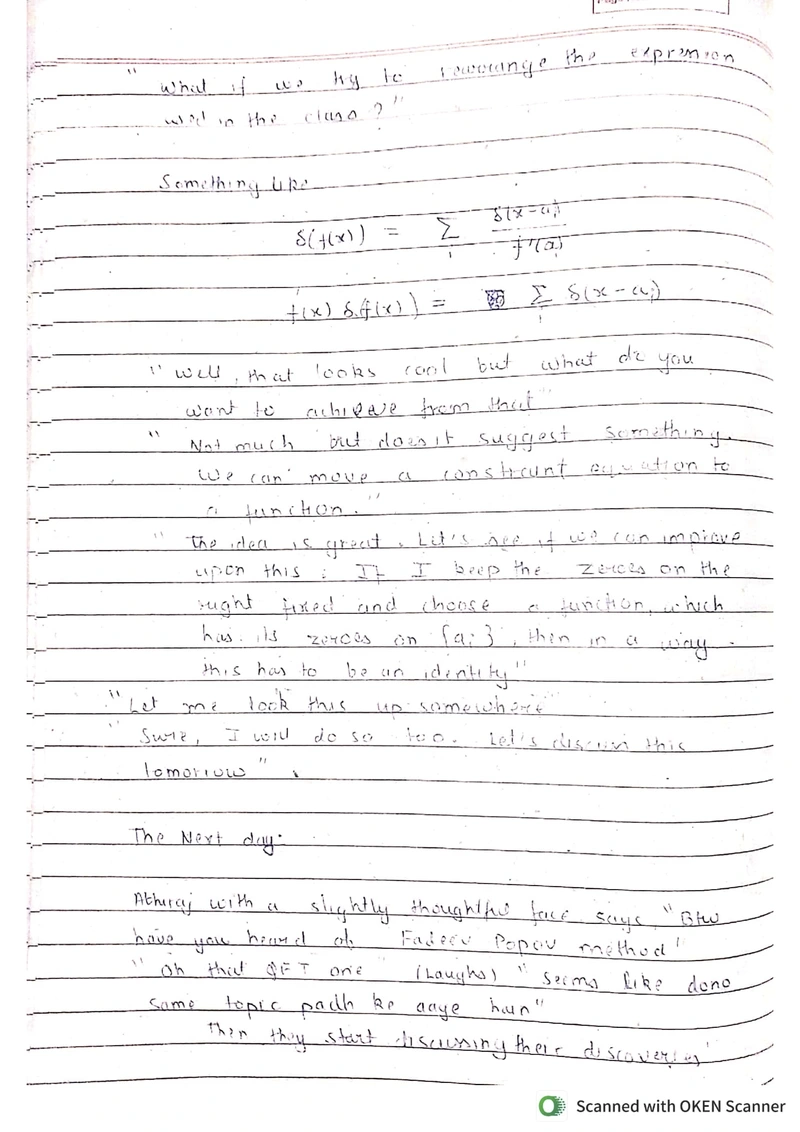 " What if we try to rearrange the expression
used in the class ? "
Something like
δ(f(x)) = Σ_i δ(x-a_i) / f'(a_i)
f(x) δ(f(x)) = Σ_i δ(x-a_i)
" Well, that looks cool but what do you
want to achieve from that "
" Not much but does it suggest something.
we can move a constraint equation to
a function. "
" The idea is great. Let's see if we can improve
upon this : If I keep the zeroes on the
right fixed and choose a function, which
has its zeroes on {a_i}, then in a way
this has to be an identity "
" Let me look this up somewhere
" Sure, I will do so too. Let's discuss this
tomorrow " .
The Next day:
with a slightly thoughtful face says " Btw
have you heard of Fadeev Popov method "
" Oh that QFT one (Laughs) " seems like dono
same topic padh ke aaye hain "
Then they start discussing their discoveries
Scanned with OKEN Scanner